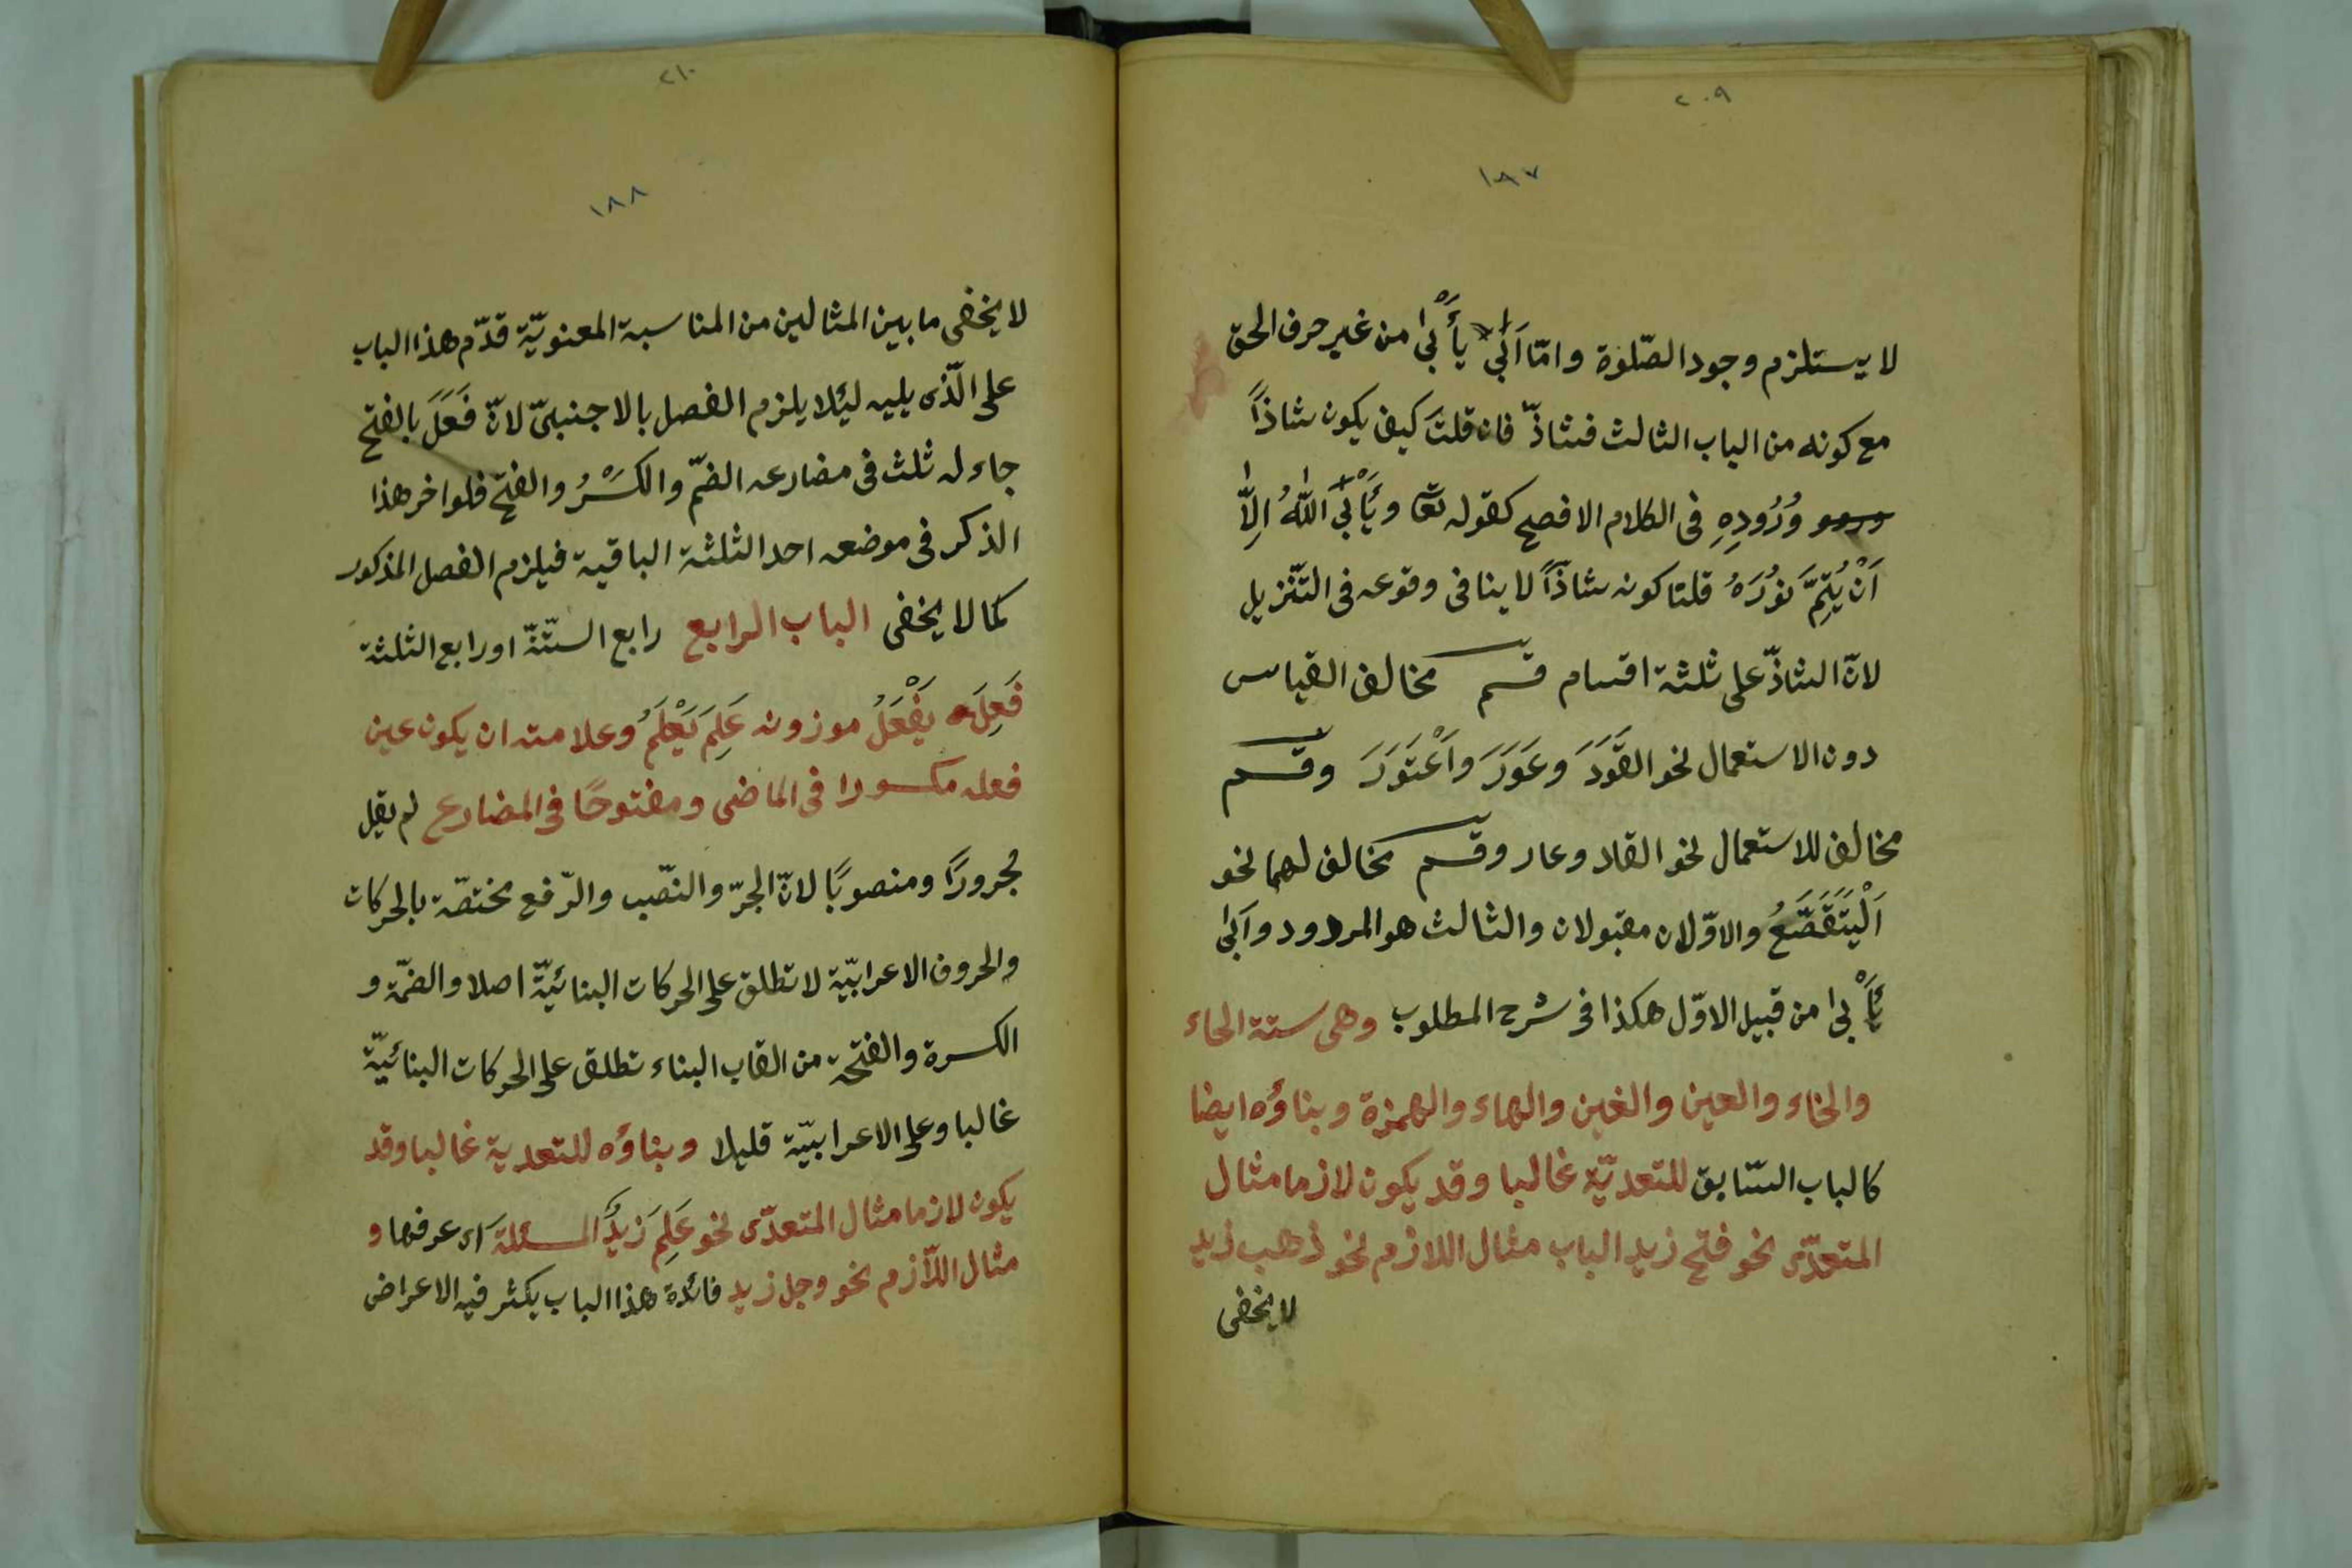 ٢٠٩
١٨٧
لا يستلزم وجود الصّلوة وامّا اَبٰى يأْبىٰ من غير حرف الحق
مع كونه من الباب الثالث فشاذّ فان قلتَ كيف يكون شاذاً
وُرُودِهِ فى الكلام الافصح كقوله تعٰ وَيَأْبىَ اللّٰهُ اِلاَّ
اَنْ يُتِمَّ نُورَهُ قلنا كونه شاذّاً لا ينافى وقوعه فى التّنزيل
لانّ الشاذّ على ثلثة اقسام قسم مخالف القياس
دون الاستعمال نحو القَوَدَ وعَوَرَ واَعْتَوَرَ وقسم
مخالف للاستعمال نحو القاد وعار وقسم مخالف لهما نحو
اَلْيَتَقَصَّعُ والاوّلان مقبولان والثالث هو المردود وآبىٰ
يَأْبىٰ من قبيل الاوّل هكذا فى شرح المطلوب وهى ستة الحاء
والخاء والعين والغين والهاء والهمزة وبناؤه ايضا
كالباب السّابق للتعديّة غالبا وقد يكون لازما مثال
المتعدّى نحو فتح زيد الباب مثال اللازم نحو ذهب زيد
لا يخفى
٢١٠
١٨٨
لا يخفى ما بين المثالين من المناسبة المعنويّة قدّم هذا الباب
على الّذى يليه ليئلا يلزم الفصل بالاجنبىّ لانّ فَعَلَ بالفتح
جاء له ثلث فى مضارعه الضمّ والكَسْرُ والفتح فلو اخر هذا
الذكر فى موضعه احد الثلثة الباقية فيلزم الفصل المذكور
كما لا يخفى الباب الرابع رابع الستّة او رابع الثلثة
فَعِلَ يَفْعَلُ موزونه عَلِمَ يَعْلَمُ وعلامته ان يكون عين
فعله مكسورا فى الماضى ومفتوحًا فى المضارع لم يقل
مجرورًا ومنصوبًا لانّ الجرّ والنصّب والرّفع مختصّة بالحركات
والحروف الاعرابيّة لا تطلق على الحركات البنائيّة اصلا والضمّة و
الكسرة والفتحة من القاب البناء تطلق على الحركات البنائيّة
غالبا وعلى الاعرابيّة قليلا وبناؤه للتعدية غالبا وقد
يكون لازما مثال المتعدّى نحو عَلِمَ زَيدٌ المسئلةَ اى عرفها و
مثال اللّازم نحو وجل زيد فائدة هذا الباب يكثر فيه الاعراض